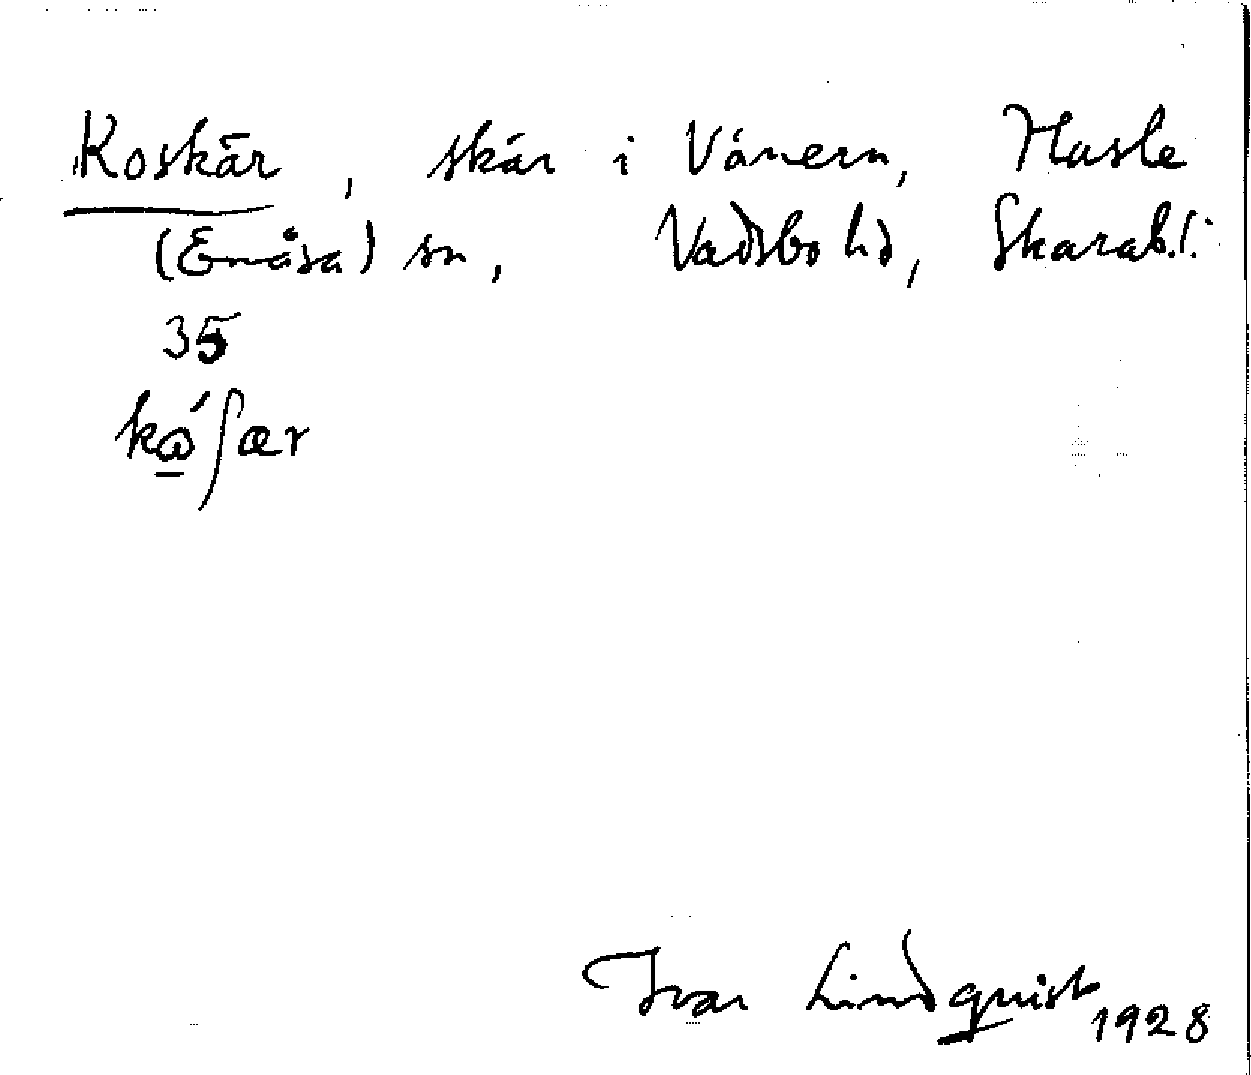 Koskär, skär i Vänern, Hasle
(Enåsa) sn, Vadsbo hd, Skarab.l.
35
kώ̲ʃær
Ivar Lindquist 1928